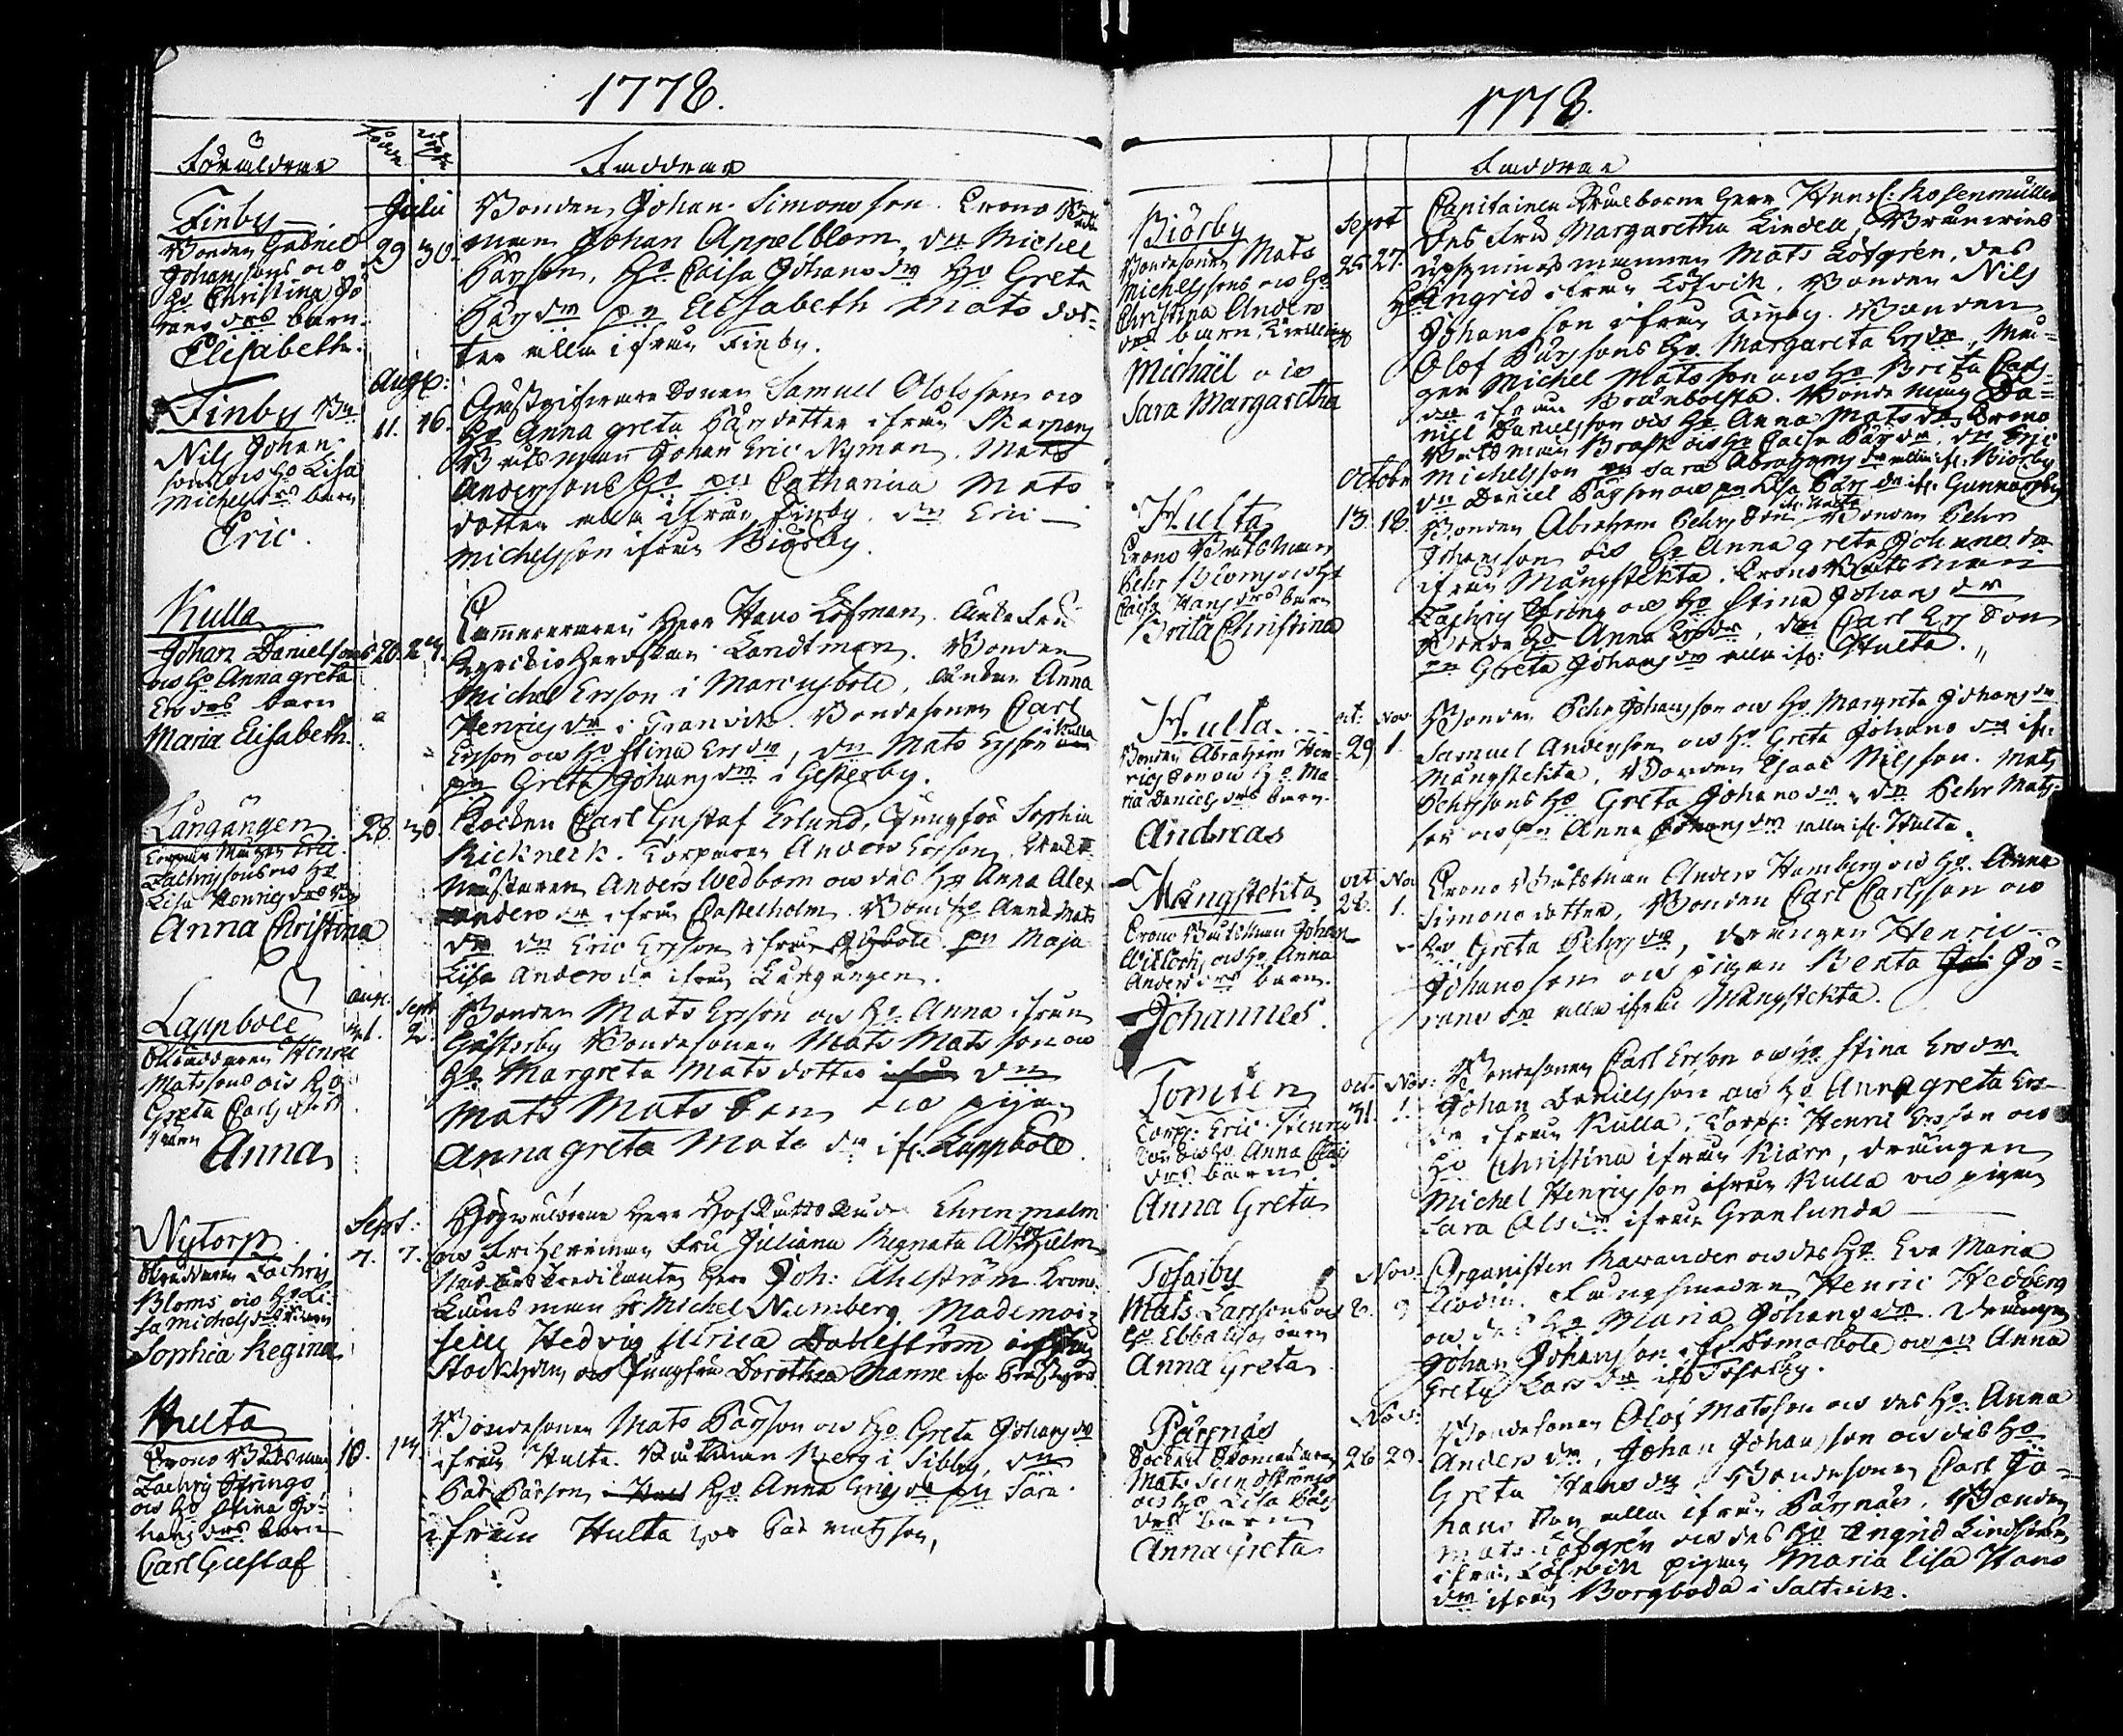 1778.
Föräldrar
Faddrar
Finby
Bonden Gabriel
Johanssons och
Hu Christina Jö
rans drs barn
Elisabeth
Julii
29 30.
Bonden Johan Simonsson. Crono Båts
man Johan Appelblom, dr Michel
Pärsson, Hu Caisa Johans dr Hu Greta
Pärs dr pn Elisabeth Mats dot-
ter alla ifrån Finby.
Finby Bn
Nils Johan
sons och Hu Lisa
Michels drs barn
Eric.
Aug:
11. 16.
Samuel Olofsson och
Hu Anna greta Pärsdotter ifrån
Båtsman Johan Eric Nyman. Mats
Anderssons Hu pn Catharina Mats
dotter alla ifrån Finby. dr Eric
Michelsson ifrån Biörby.
Kulla
Johan Danielssons
och Hu Anna greta
Ers drs barn
Maria Elisabeth
20. 24.
Herr Hans Löfman.
Landtman. Bonden
Michel Ersson i Marcusböle, Änkan Anna
Henrics dr i Tranvik. Bondesonen Carl
Ersson och Hu Stina Ers dr, dr Mats Ersson i Kulla
pn Greta Johans dr i Gesterby.
Långängen
Eric
Zachrissons och Hu
Lisa Henrics drs
Anna Christina
28. 30.
Carl Gustaf Erlund, Jungfru Sophia
Rickneck. Torparen Anders Ersson,
mästaren Anders Wedbom och des Hu Anna Alex
anders dr ifrån Castelholm. Anna Mats
dr dr Eric Ersson ifrån pn Maja
Lisa Anders dr ifrån Långängen.
Lappböle
Henric
Matssons och Hu
Greta Carls
barn
Anna
Aug: Sept
31. 2.
Bonden Mats Ersson och Hu Anna ifrån
Gästerby Bondesonen Mats Matsson och
Hu Margreta Matsdotter dr
Mats Matsson och pigan
Anna greta Mats dr ifr. Lappböle.
Nytorp
Skräddaren Zachris
Bloms och Hu Li-
sa Michels drs barn
Sophia Regina
Sept:
4. 7.
Högwälborne Herr Ehrenmalm
och Friherrinnan Fru Juliana Regnata
Predikanten Herr Joh: Ahlström Krono
Länsman Hr Michel Numberg. Mademoi-
selle Hedvig Ulrica ifrån
Stockholm och Jungfru Dorothea Manne
Hulta
Crono Båtsman
Zachris Springs
och Hu Stina Jo-
hans drs barn
Carl Gustaf
10. 14.
Bondesonen Mats Pärsson och Hu Greta Johans dr
ifrån Hulta. Båtsman Berg i Sibby, dr
Pär Pärsson Hu Anna Erics dr pn Sara
ifrån Hulta Pär Matsson,
1778.
Faddrar
Biörby
Bondesonen Mats
Michelssons och Hu
Christina Anders
drs barn
Michaël och
Sara Margaretha
Sept
25 27.
Capitainen Wälborne Herr Rosenmüller
Des Fru Margaretha Lindea,
upsyningsmannen Mats Löfgren, des
Hu Ingrid ifrån Löfvik. Bonden Nils
Johansson ifrån Finby. Bonden
Olof Pärssons Hu Margareta Ers dr,
Michel Matsson och Hu Brita Carls
dr ifrån Brånbolsta. Bonden Da-
niel Danielsson och Hu Anna Mats dr Crono
Båtsman Brask och Hu Caisa Pärs dr, dr Eric
Michelsson pn Sara Abrahams dr alla ifr. Biörby
dr Daniel Pärsson och pn Lisa Pärs dr ifr. Gunnarsby
Hulta
Crono Båtsman
Pehr Biorns och Hu
Caisa Hans drs barn
Brita Christina
Octobr
13. 18.
Bonden Abraham Pehrsson ifr. Hulta Bonden Pehr
Johansson och Hu Anna greta Johans dr
ifrån Mångstekta. Crono Båtsman
Zachris Spring och Hu Stina Johans dr
Bonde Hu Anna Ers dr, dr Carl Ersson
pn Greta Johans dr alla ifr: Hulta.
Hulta
Bonden Abraham Hen-
ricsson och Hu Ma-
ria Daniels drs barn
Andreas
oct: Nov
29 1.
Bonden Pehr Johansson och Hu Margreta Johans dr
Samuel Andersson och Hu Greta Johans dr ifr.
Mångstekta, Bonden Isaac Nilsson. Mats
Pehrssons Hu Greta Johans dr, dr Pehr Mats-
son och pn Anna Johans dr alla ifr. Hulta.
Mångstekta
Crono Båtsman Johan
och Hu Anna
Anders drs barn
Johannes.
oct Nov
28. 1.
Crono Båtsman Anders Hamberg och Hu Anna
Simons dotter, Bonden Carl Carlsson och
Hu Greta Pehrs dr, drängen Henric
Johansson och pigan Berta Jö-
rans dr alla ifrån Mångstekta.
Tomten
Torp: Eric Henrics
son och Hu Anna Carls
drs barn
Anna Greta
oct. Nov:
31. 1.
Bondesonen Carl Ersson och Hu Stina Ers dr
Johan Danielsson och Hu Anna greta Ers
dr ifrån Kulla, Torp: Henric Ersson och
Hu Christina ifrån Kiärr, drängen
Michel Henricsson ifrån Kulla och pigan
Sara Ols dr ifrån Granlunda
Tosarby
Mats Larssons och
Hu Ebba Lisas barn
Anna Greta
Nov.
8. 9
Organisten Ravander och des Hu Eva Maria
Henric Hedberg
och des Hu Maria Johans dr. Drängen
Johan Johansson ifr. Domarböle och pn Anna
Greta Lars dr ifr Tosarby.
Pärsnäs
Mats Sundströms
och Hu Lisa Pärs
drs barn
Anna Greta
Nov:
26 29.
Bondesonen Olof Matsson och des Hu Anna
Anders dr, Johan Johansson och des Hu
Greta Hans dr, Bondesonen Carl Jo-
hansson alla ifrån Pärsnäs. Bonden
Mats Löfgren och des Hu Ingrid
ifrån Löfwik pigan Maria Lisa Hans
dr ifrån Borgboda i Saltwik.